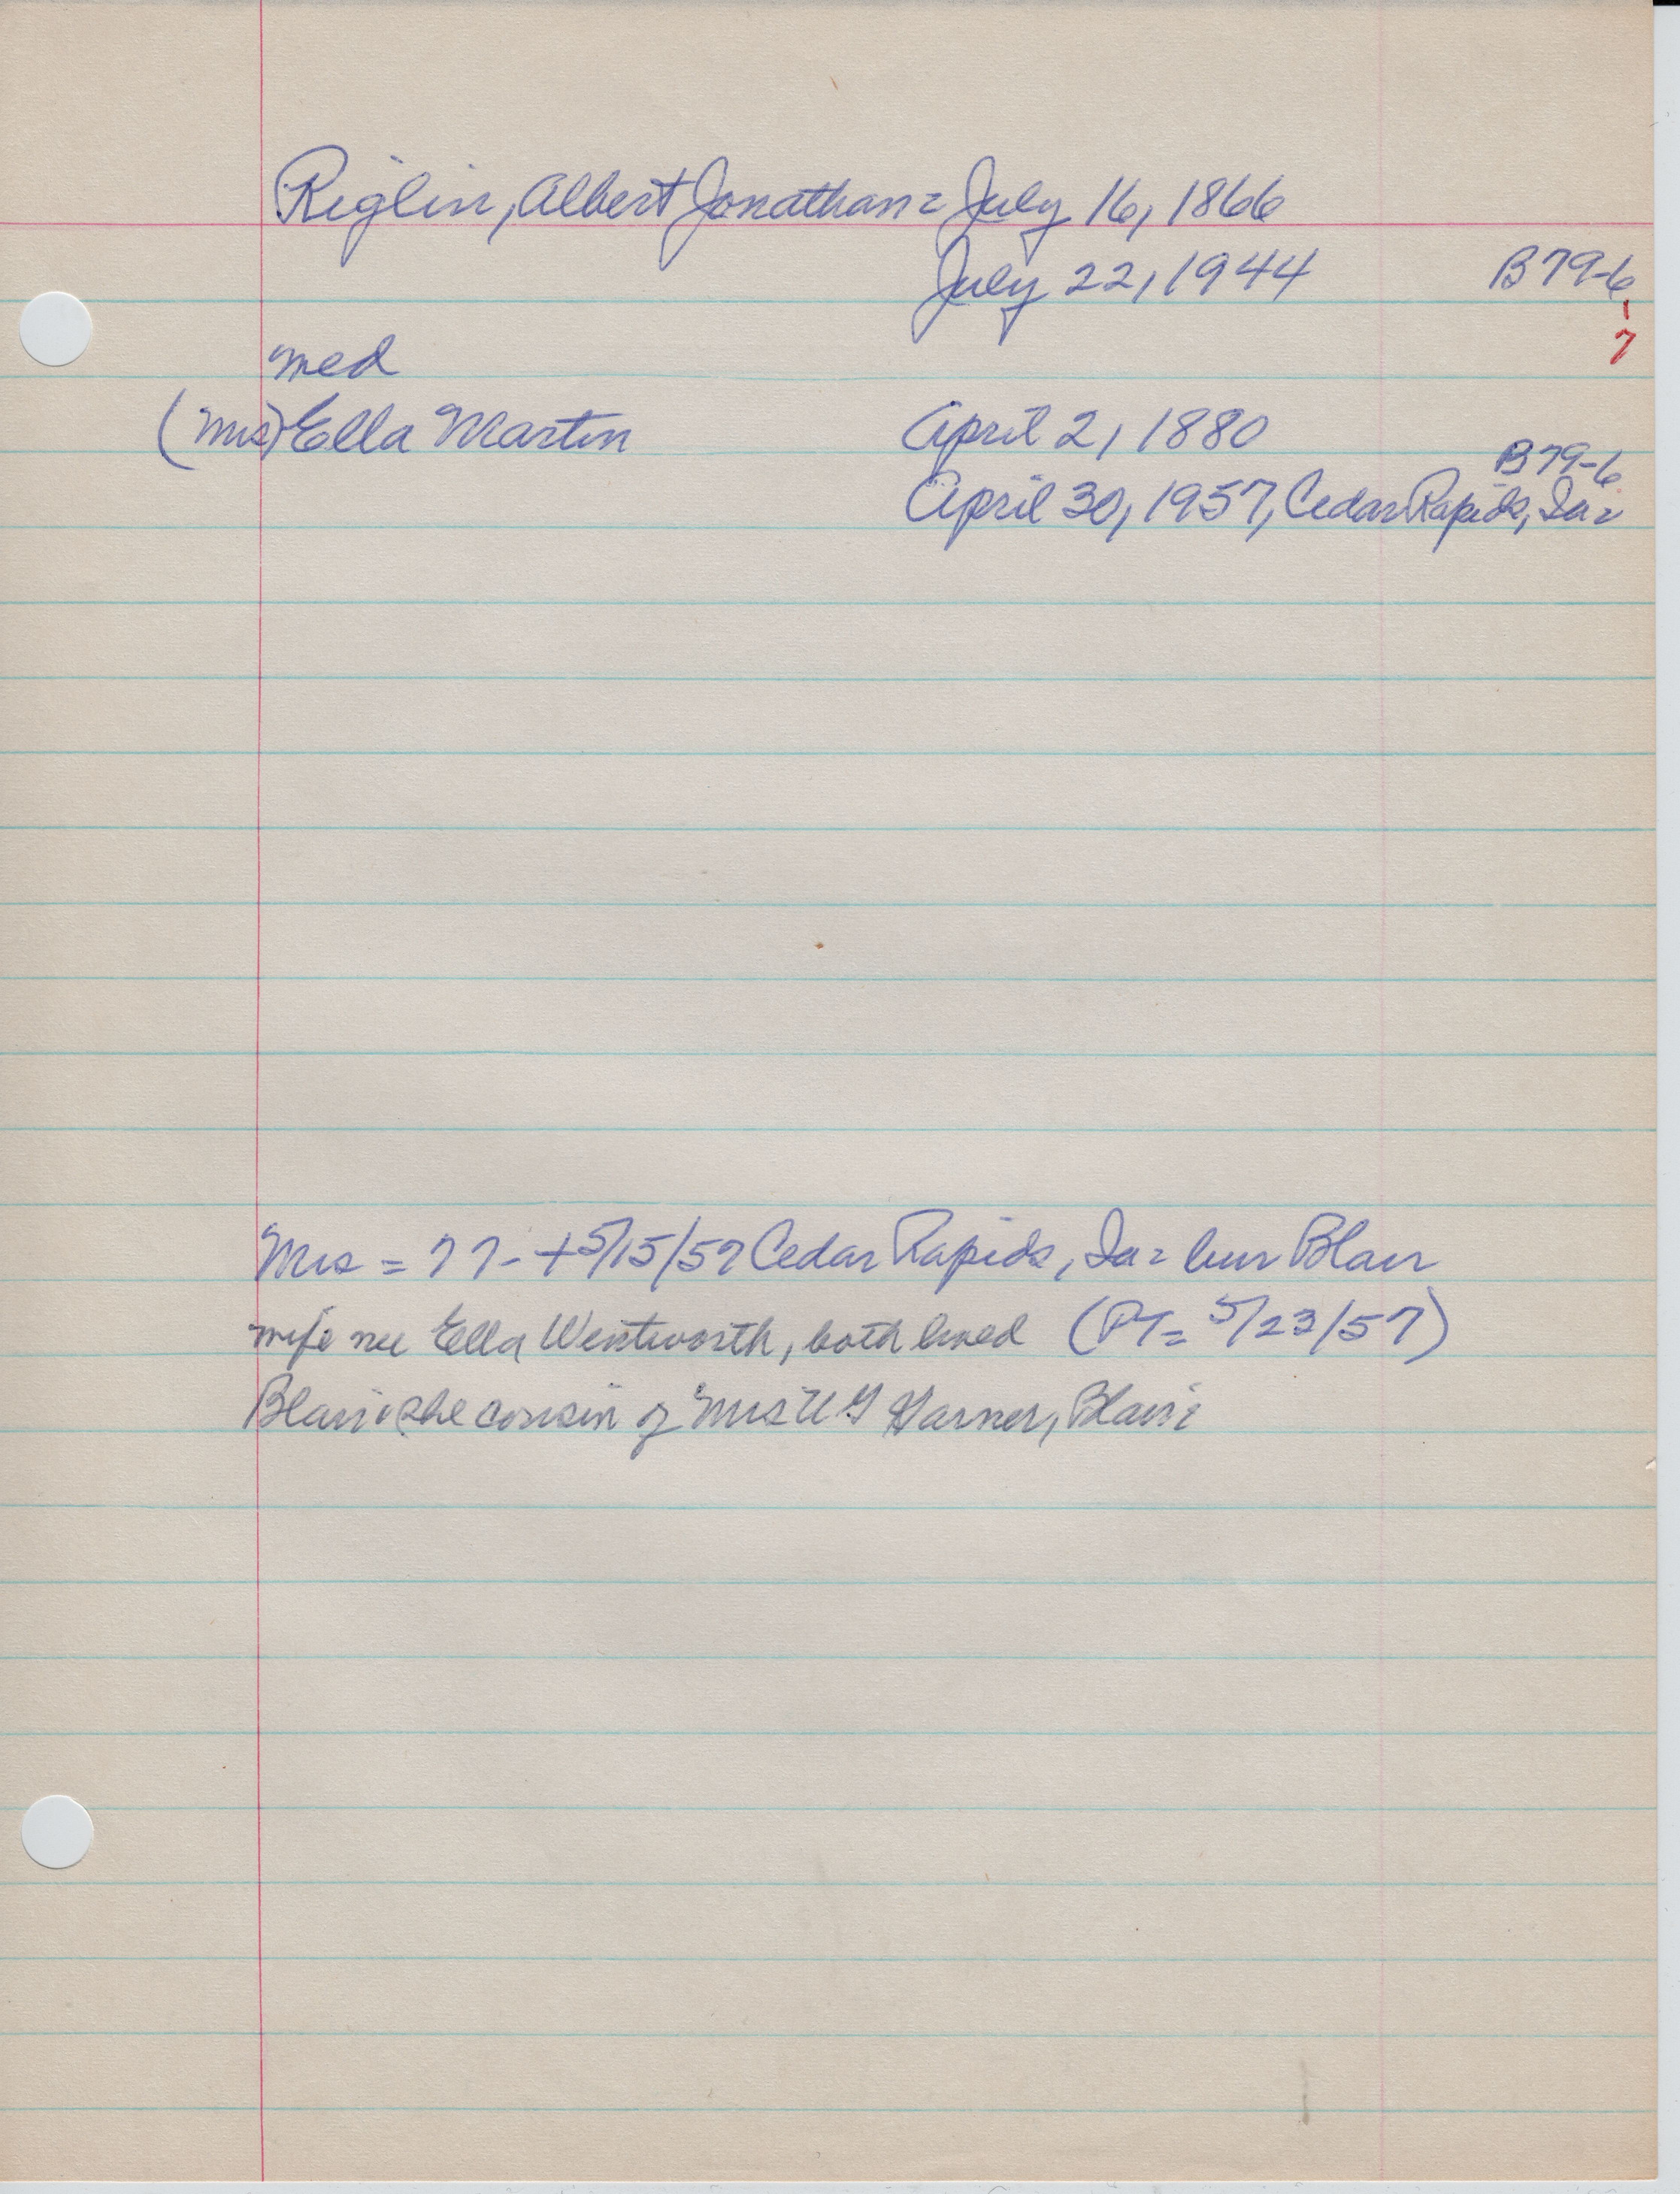 Riglin, Albert Jonathan = July 16, 1866
July 22, 1944 B79-6
-7
med
(Mrs) Ella Martin April 2, 1880
B79-6
April 30, 1957, Cedar Rapids, Ia =
Mrs = 77 - + 5/15/57 Cedar Rapids, Ia = bur Blair
wife nee Ella Wentworth, both lived (PT = 5/23/57)
Blair = she cousin of Mrs U G Warner, Blair =